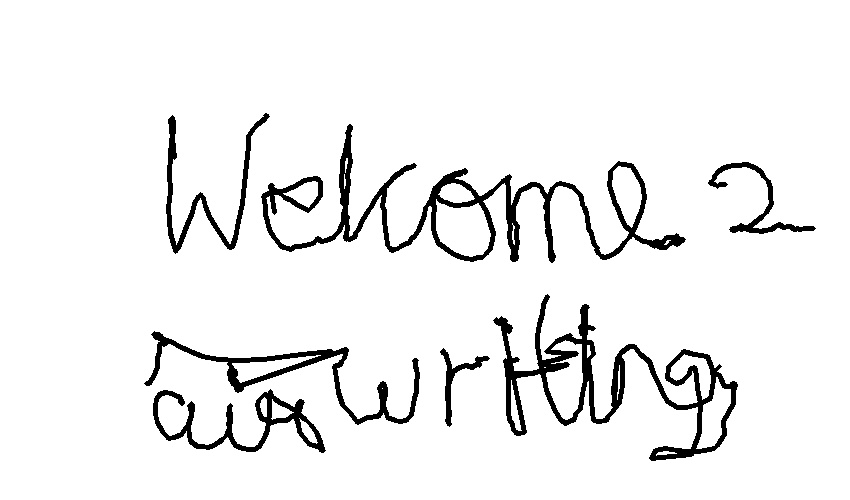 Welcome 2
air writing